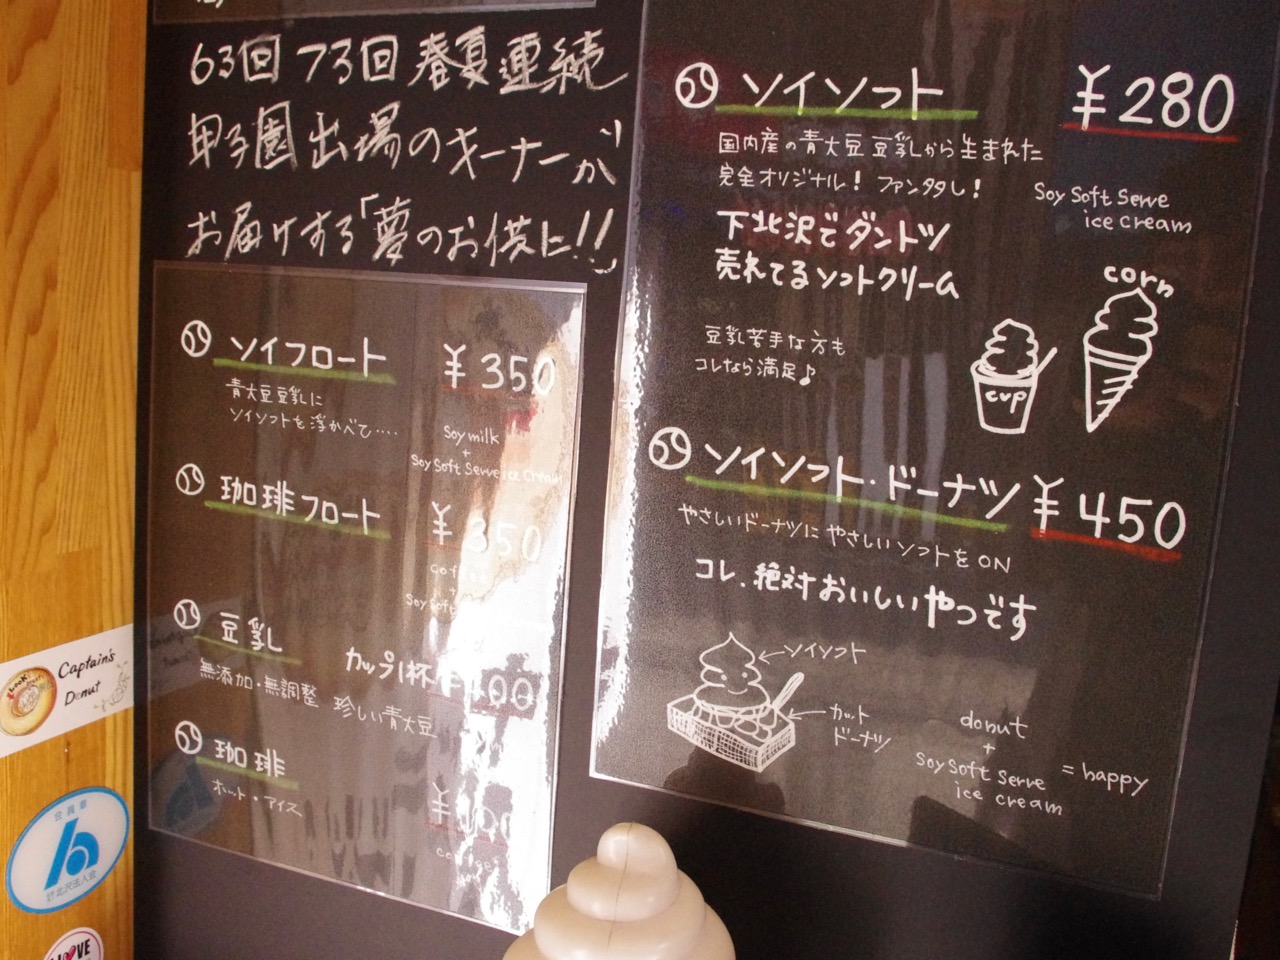 63回 73回 春夏連続
甲子園出場のオーナーが
お届けする「夢のお供に!!」
ソイフロート ¥350
青大豆豆乳に
ソイソフトを浮かべて‥‥
Soy milk
+
Soy Soft Serve ice Cream
珈琲フロート ¥350
coffee
+
Soy Soft
豆乳 カップ1杯 ¥100
無添加・無調整 珍しい青大豆
珈琲
ホット・アイス
coffee
ソイソフト ¥280
国内産の青大豆 豆乳から生まれた
完全オリジナル! ファン多し!
Soy Soft Serve
ice cream
下北沢でダントツ
売れてるソフトクリーム
豆乳苦手な方も
コレなら満足♪
corn
cup
ソイソフト・ドーナツ ¥450
やさしいドーナツに やさしいソフトをON
コレ、絶対おいしいやつです
ソイソフト
カット
ドーナツ
donut
+
Soy Soft Serve
ice cream
= happy
Captain's
Donut
会員章
北沢法人会
LOVE